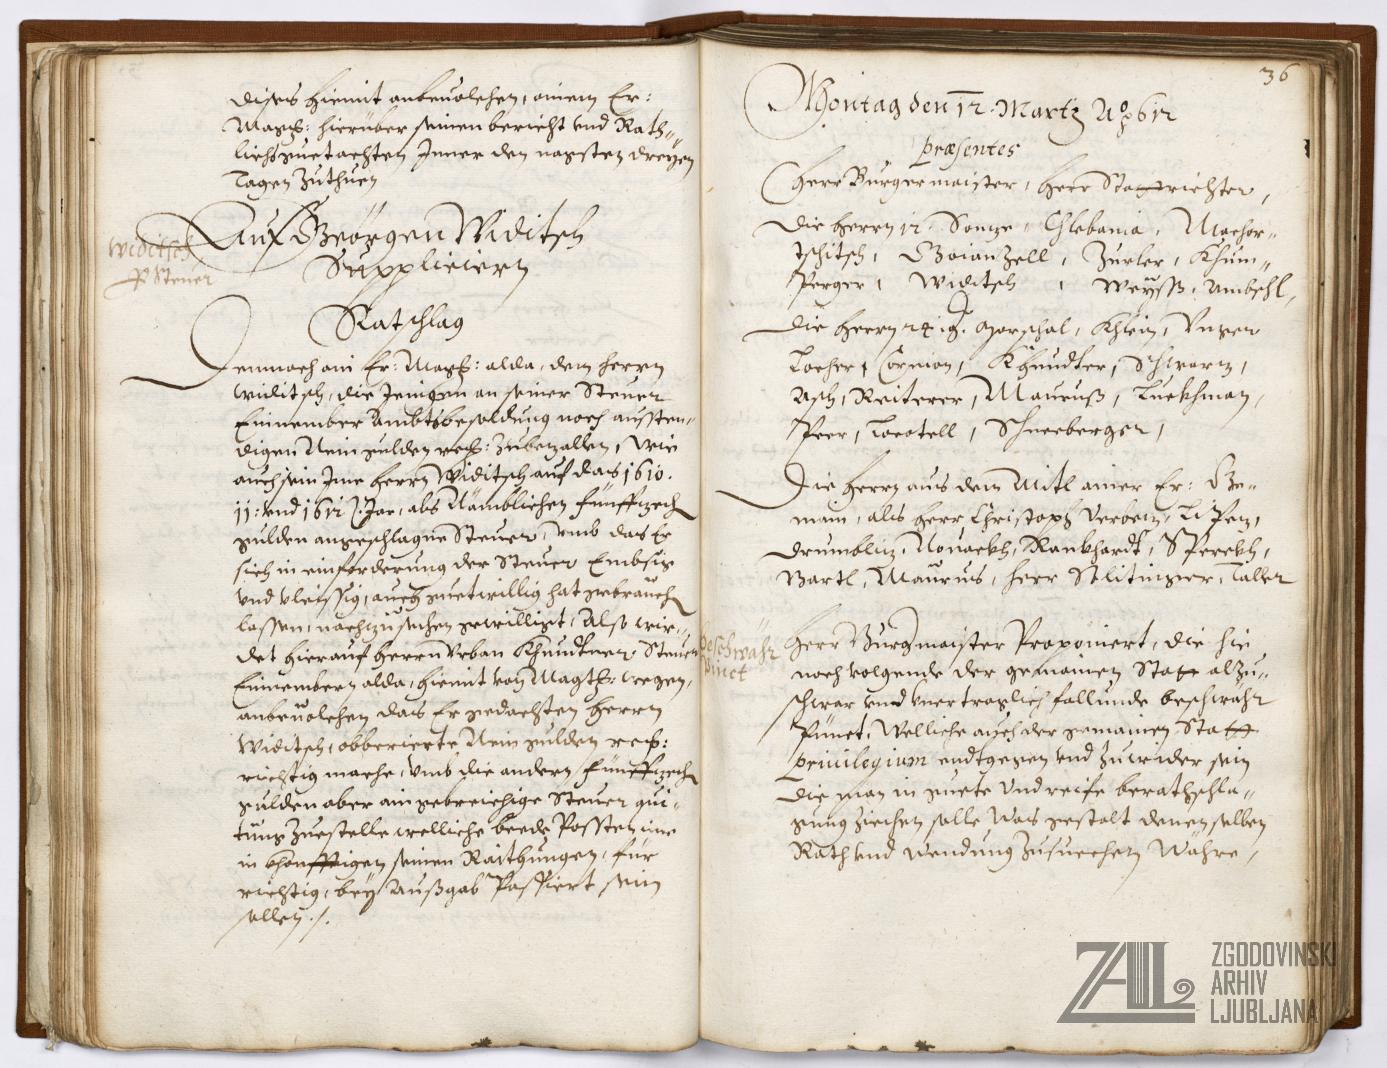 dises hiemit anbeuolchen, ainem Er:
Magt: hierüber seinen bericht vnd Rath=
lichs guetachten Inner den nagsten dreyen
Tagen zuthuen
Widitsch
P Steuer
Auf Georgen Widitsch
Suppliciern
Ratschlag
Demnach ain Er: Magt: alda, dem herrn
Widitsch, die Jenigen an seiner Steuer
Einnember Ambtsbesoldung noch aussten=
digen Neün gulden zubezallen, Wie
auch sein Ime herrn Widitsch auf das 1610.
11: vnd 1612 Jar, als Nämblichen fünffzech
gulden angeschlagne Steuer, vmb das Er
sich in einforderung der Steuer Embsig
vnd vleissig, auch guetwillig hat gebrauch
lassen, nachzusehen gewilligt, Also wir=
det hierauf herrn Vrban Khundtner Steuer
Einnembern alda, hiemit von Magt: wegen,
anbeuolchen das Er gedachten herrn
Widitsch, obberierte Neün gulden
richtig mache, vmb die andern fünffzech
gulden aber ain gebreichige Steuer qui=
tung zuestelle welliche beede Possten ime
in khonfftigen seinen Raithungen, für
richtig, bey Außgab Passiert sein
sollen ./.
36
Montag den 12. Martz Ao 612
præsentes
Herr Burgermaister, herr Stattrichter,
Die herrn 12. Sonze, Chlebania, Machor=
tschitsch, Goian Zell, Zurler, Khum=
perger, Widitsch, Weyss, Ambschl,
Die herrn 24 ig. Marschal, Khlein, Vnger
Locher, Cornion, Khundter, Schwarz,
Asch, Reiterer, Mauruß, Luckhman,
Peer, Schneeberger,
Die herrn aus dem Mitl ainer Er: Ge=
main, als herr Christoph Verbez, Lipez,
Drumbliz, Nouackh, Rankhardt, Sperekh,
Bartl, Maurus, herr Stlitinger, Taller
Beschwähr
Punct
Herr Burgmaister Proponiert, die hie
noch volgende der gemainen Statt alzu=
schwar vnd vnertraglich fallunde beschwähr
Punct, Welliche auch der gemainen Statt
priuilegium endtgegen vnd zuwider sein
Die man in guete vnd reife berathschla=
gung ziechen solle was gestalt denenselben
Rath vnd Wendung zusuechen Währe,
ZAL
ZGODOVINSKI
ARHIV
LJUBLJANA